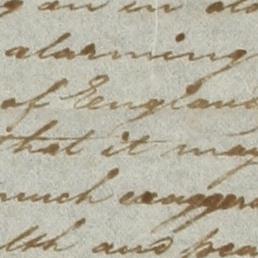 an in
alarming
of England
that it may
much exagger
lth and pea